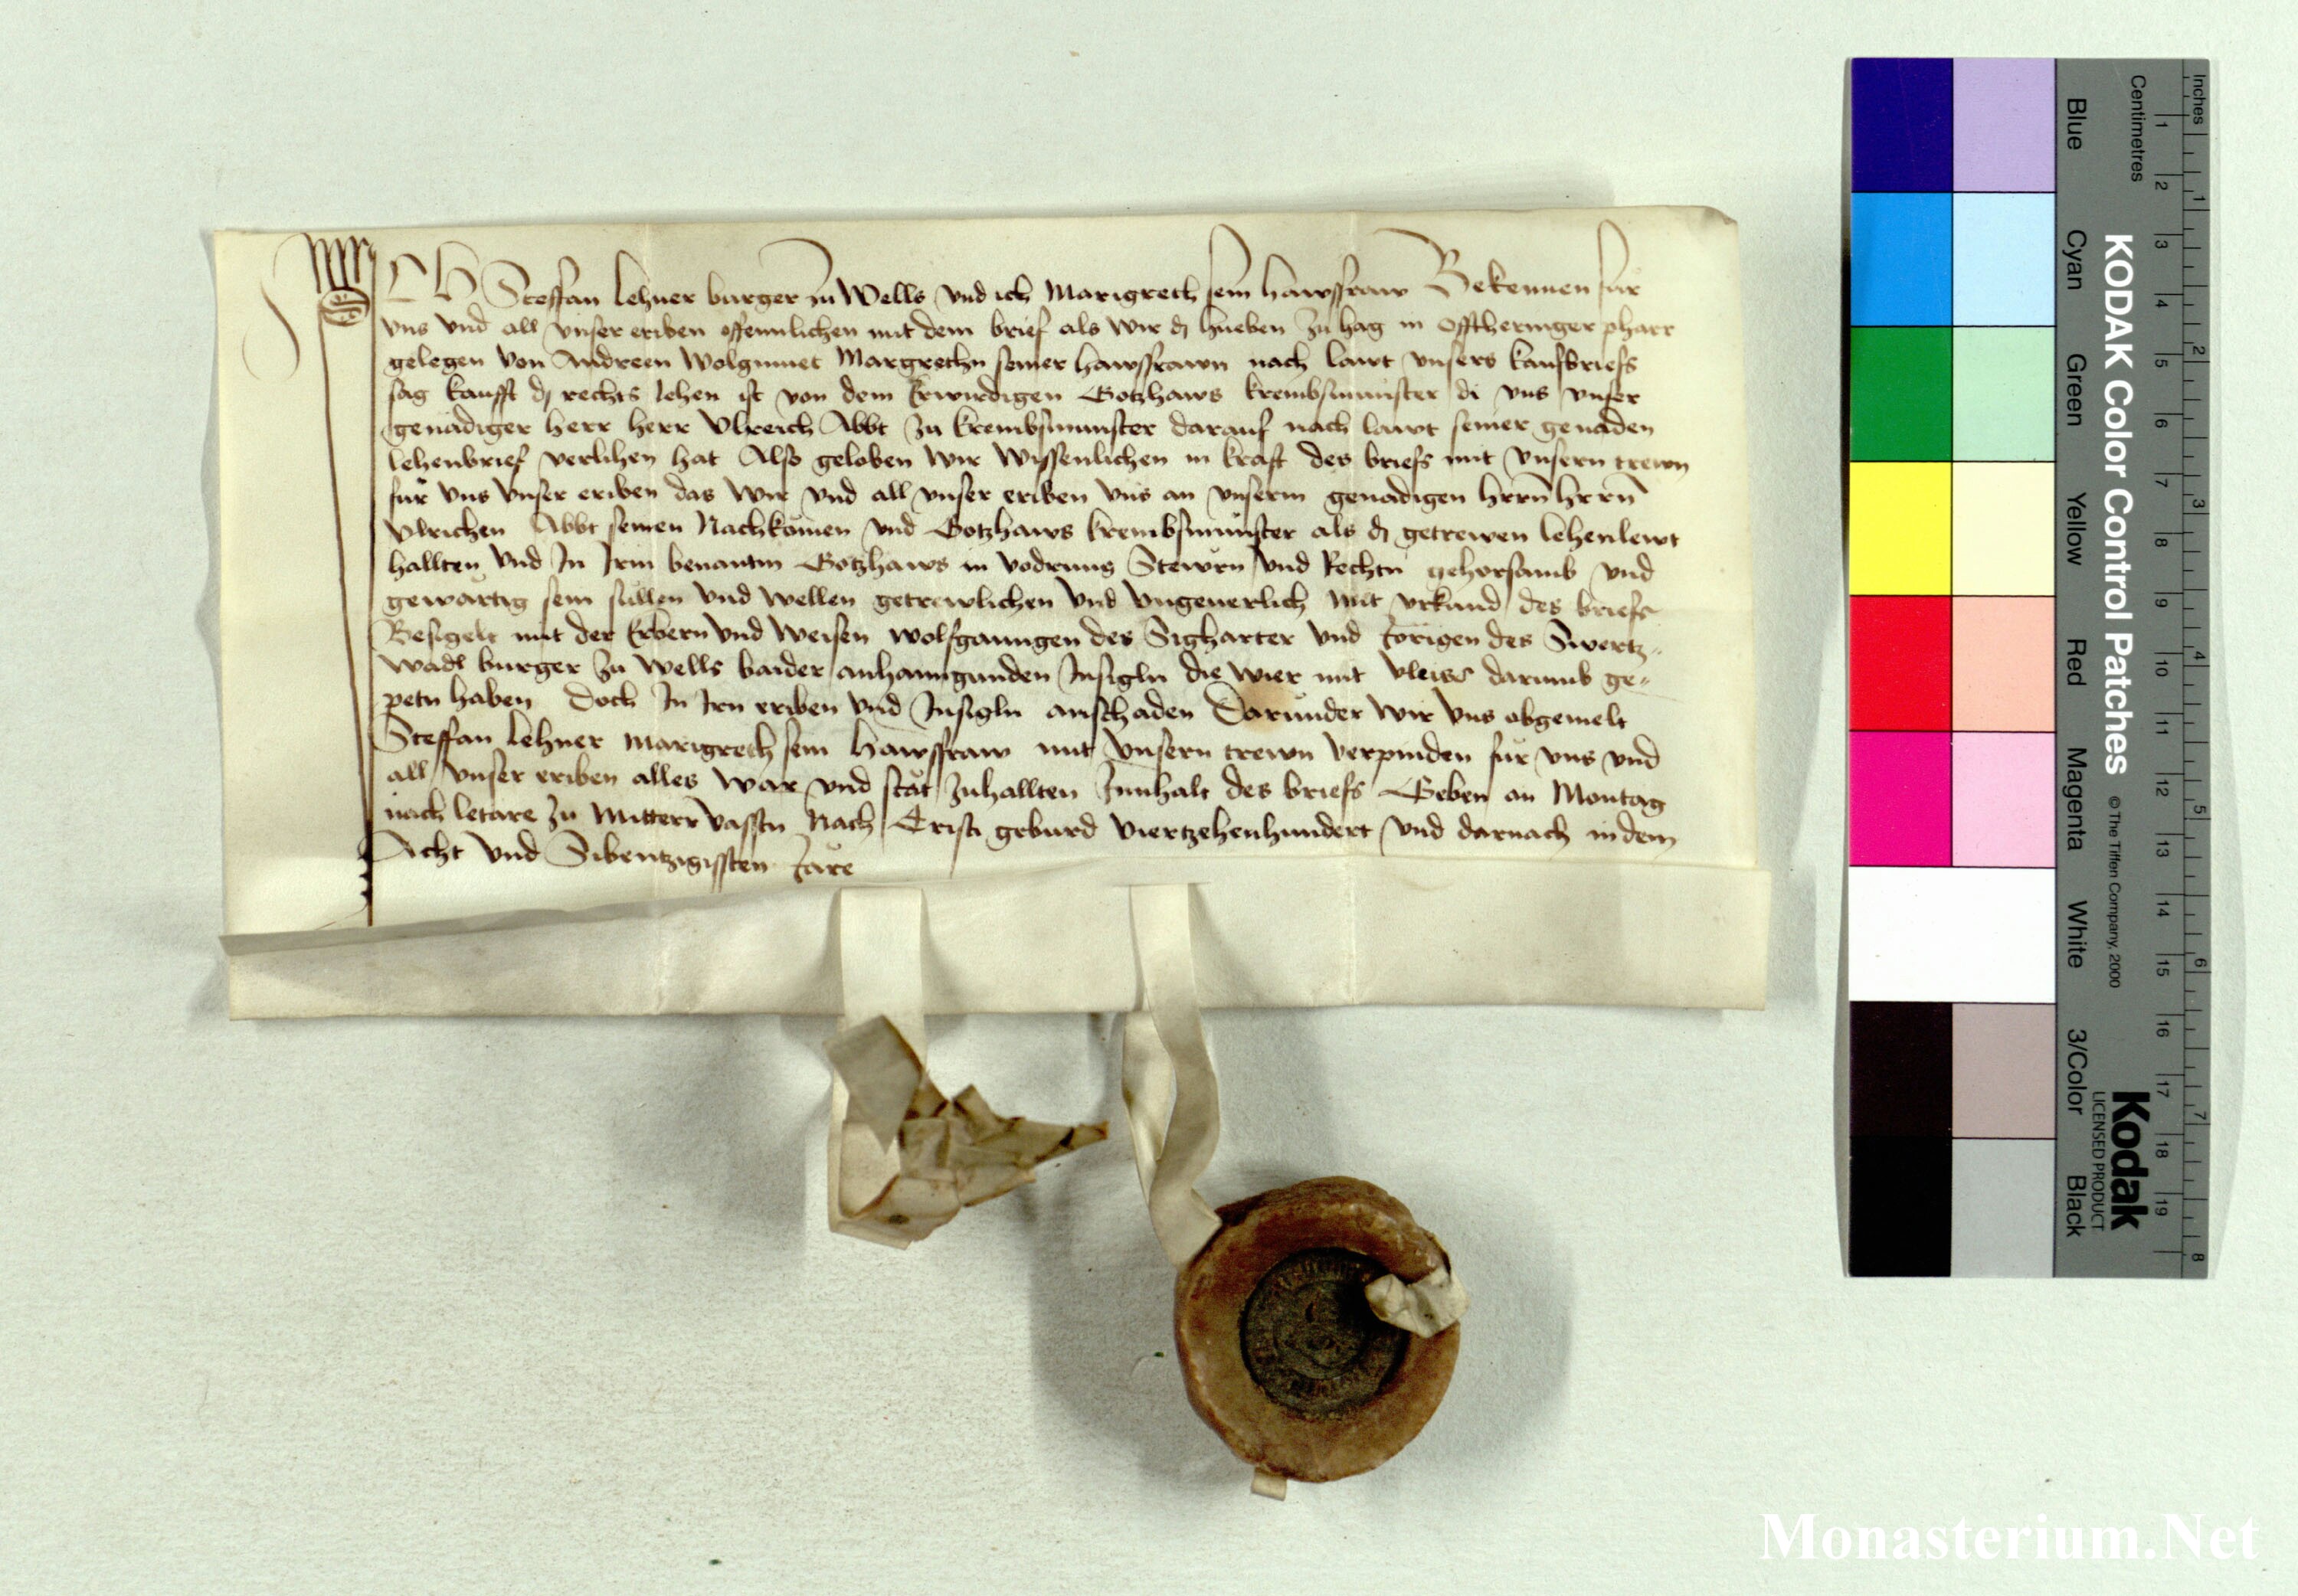 ICH Steffan lehner burger zu Wells vnd ich Marigreth sein hawsfraw Bekennen fur
vns vnd all vnser eriben offennlichen mit dem brief als wir dy hueben zu hag in Offtheringer pharr
gelegen von Andreen Wolgmuet Margrethn seiner hawsfrawn nach lawt vnsers kaufbriefs
sag kaufft dy rechts lehen ist von dem Erwirdigen Gotzhaws krembsmunster di vns vnser
genadiger herr herr Vlreich Abbt zu krembsmunster darauf nach lawt seiner genaden
lehenbrief verlihen hat Also geloben wir wissenlichen in kraft des briefs mit vnsern trewn
für vns vnser eriben das wir vnd all vnser eriben vns an vnserm genadigen hern hern
Vlrichen Abbt seinen Nachkomen vnd Gotzhaws krembsmunster als dy getrewen lehenlewt
hallten vnd In Irm benantm Gotzhaws in vodrung Stewrn vnd Rechtn gehorsamb vnd
gewartig sein sullen vnd wellen getrewlichen vnd vngeuerlich mit vrkund des briefs
Besigelt mit der Erbern vnd weisen wolfganngen des Sigharter vnd Jorigen des Swertz-
wadl burger zu Wells baider anhanngunden Insigln die wier mit vleiss darumb ge-
petn haben doch In Irn eriben vnd Insigln anschaden Darunder wir vns obgemelt
Steffan lehner Marigreth sein hawsfraw mit vnsern trewn verpinden für vns vnd
all vnser eriben alles war vnd stät zuhallten Innhalt des briefs Geben an Montag
nach letare zu Mitterr vassten Nach Cristi geburd viertzehenhundert vnd darnach in dem
Acht vnd Sibentzigissten Jare
Inches
Centimetres
1 2 3 4 5 6 7 8 9 10 11 12 13 14 15 16 17 18 19
1 2 3 4 5 6 7 8
KODAK Color Control Patches © The Tiffen Company, 2000
Kodak
LICENSED PRODUCT
Blue Cyan Green Yellow Red Magenta White 3/Color Black
Monasterium.Net